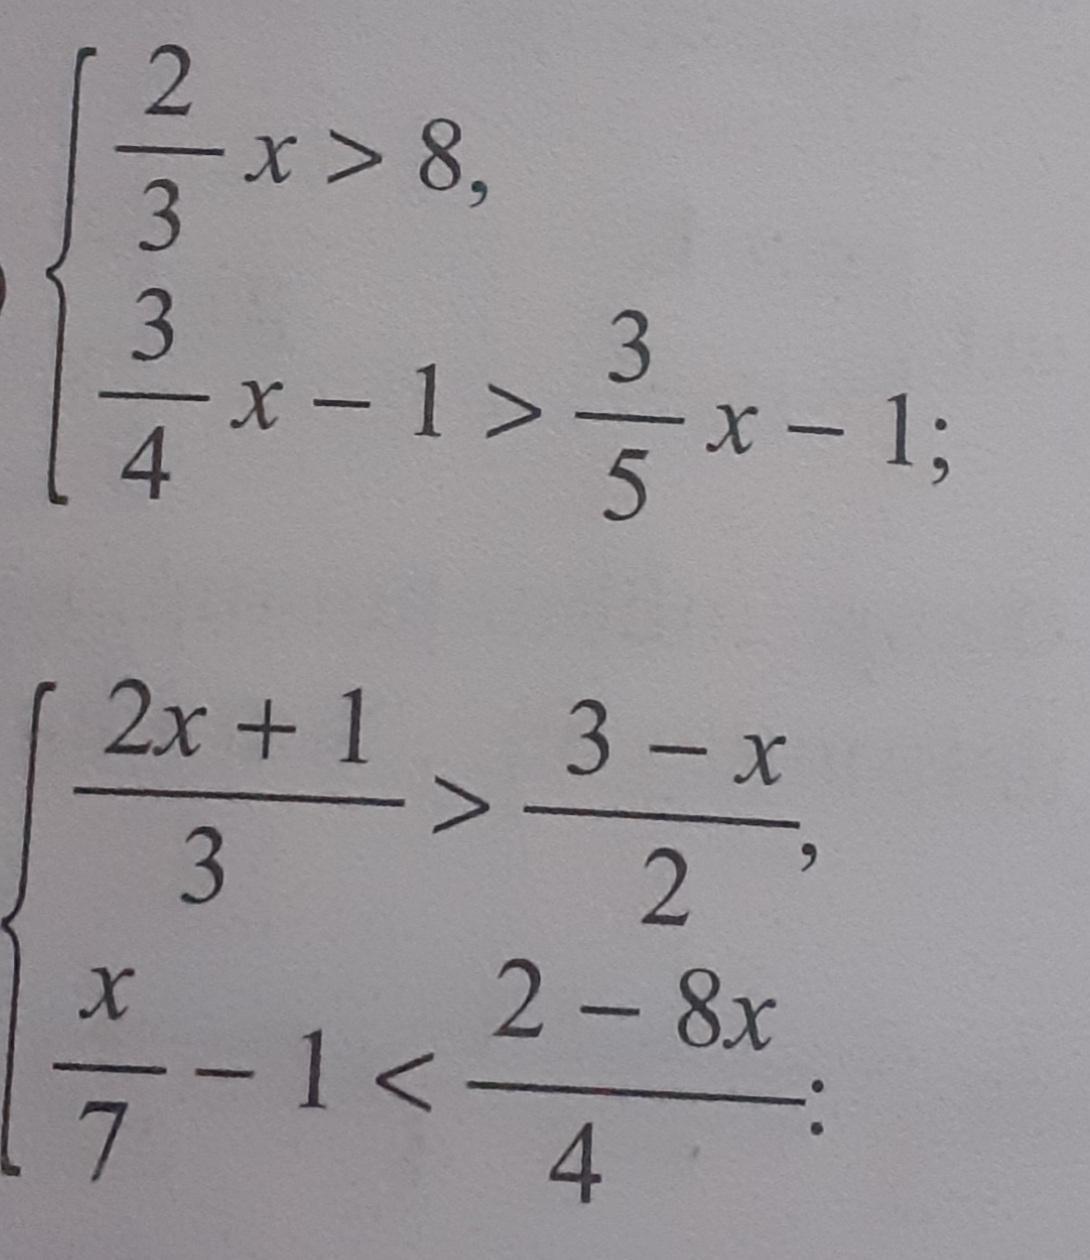 2/3 x > 8,
3/4 x − 1 > 3/5 x − 1;
(2x + 1)/3 > (3 − x)/2,
x/7 − 1 < (2 − 8x)/4: